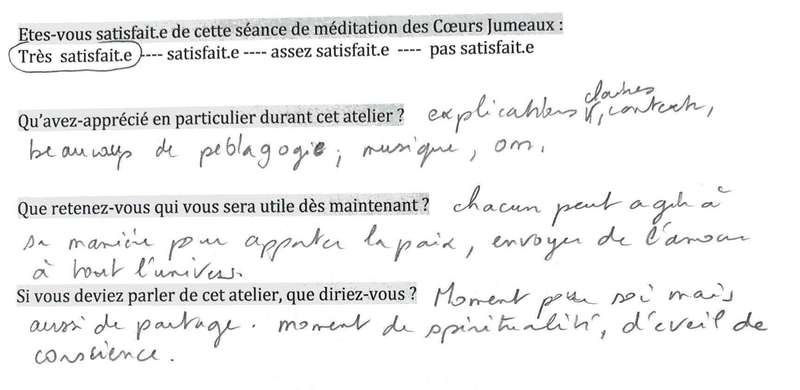 Etes-vous satisfait.e de cette séance de méditation des Cœurs Jumeaux :
Très satisfait.e ---- satisfait.e ---- assez satisfait.e ---- pas satisfait.e
Qu'avez-apprécié en particulier durant cet atelier ? explications claires, contexte,
beaucoup de péblagogie, musique, om.
Que retenez-vous qui vous sera utile dès maintenant ? chacun peut agir à
sa manière pour apporter la paix, envoyer de l'amour
à tout l'univers.
Si vous deviez parler de cet atelier, que diriez-vous ? Moment pour soi mais
aussi de partage. moment de spiritualité, d'éveil de
conscience.